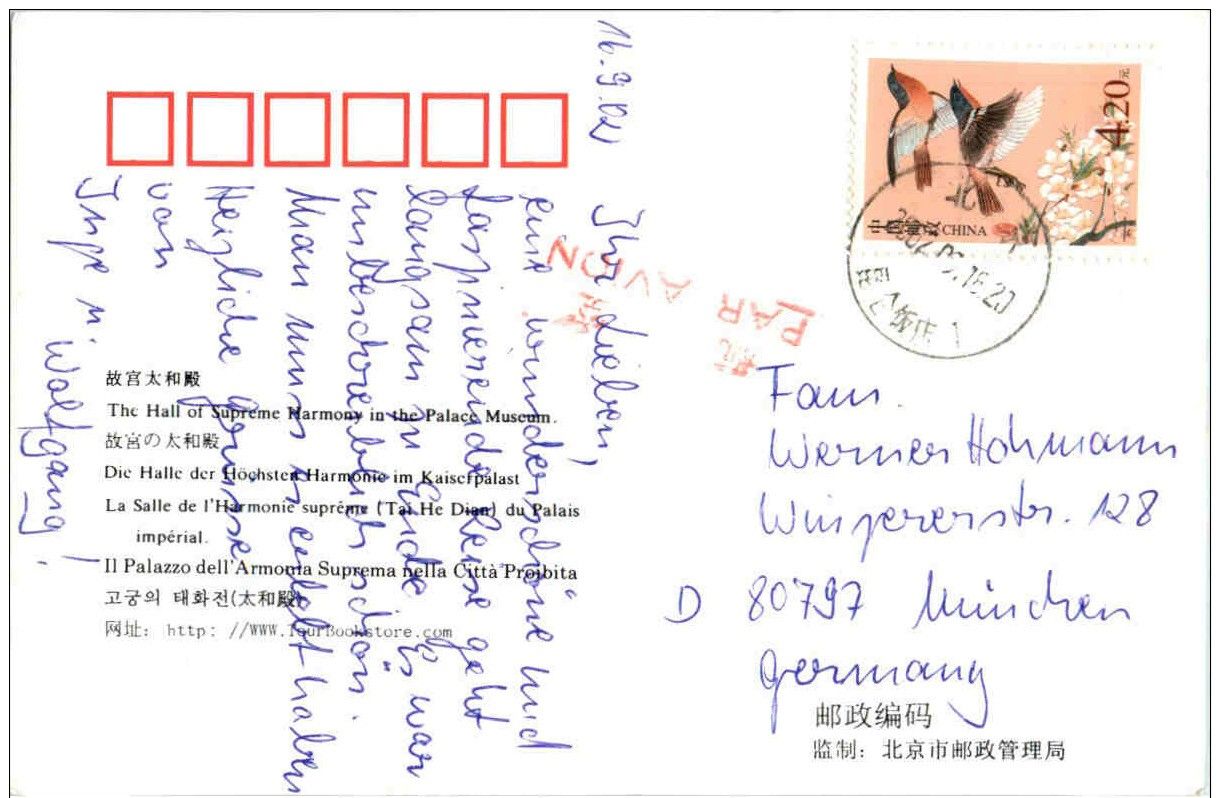 16.9.02
Ihr Lieben,
eine wunderschöne und
faszinierende Reise geht
langsam zu Ende. Es war
unbeschreiblich schön.
Man muss es erlebt haben
Herzliche Grüsse
von
Inge u. Wolfgang!
故宫太和殿
The Hall of Supreme Harmony in the Palace Museum.
故宮の太和殿
Die Halle der Höchsten Harmonie im Kaiserpalast
La Salle de l'Harmonie suprême (Tai He Dian) du Palais
impérial.
Il Palazzo dell'Armonia Suprema nella Città Proibita
고궁의 태화전(太和殿)
网址: http: //WWW.TourBookstore.com
PAR AVION
4.20元
中国邮政 CHINA
北京
饭店
Fam.
Werner Hohmann
Winzererstr. 128
D 80797 München
Germany
邮政编码
监制: 北京市邮政管理局